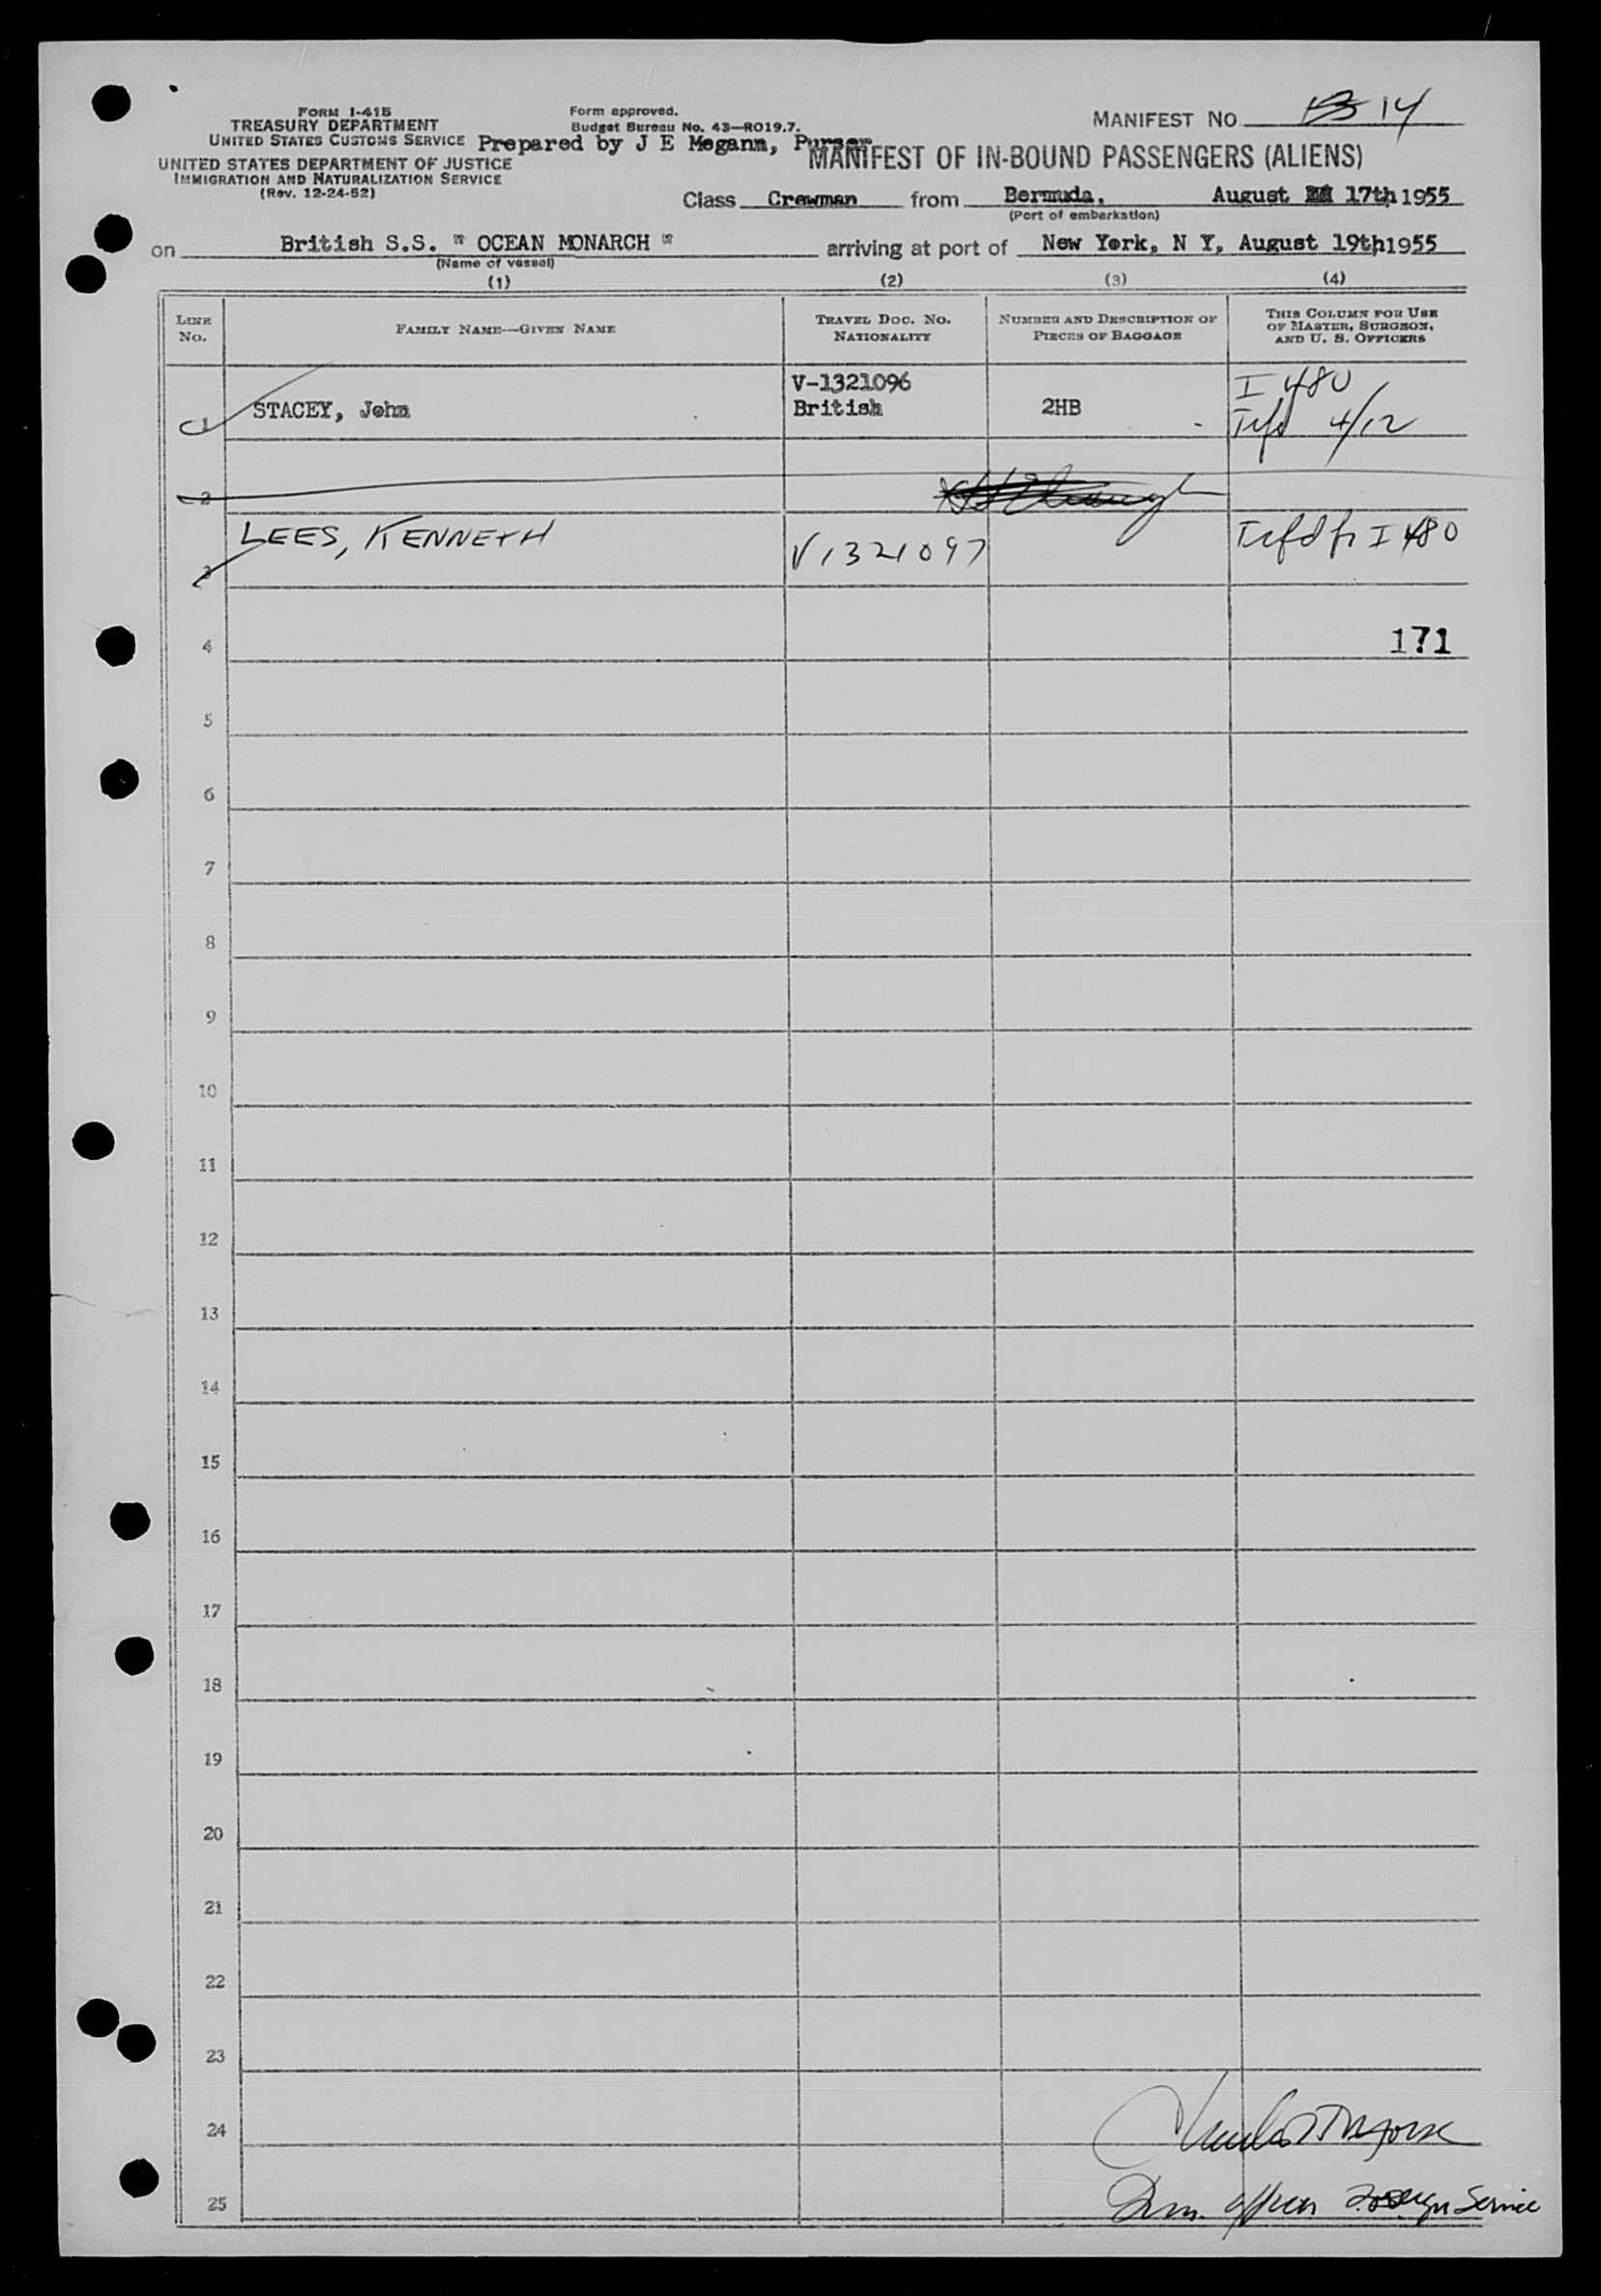 FORM I-415
TREASURY DEPARTMENT
UNITED STATES CUSTOMS SERVICE
UNITED STATES DEPARTMENT OF JUSTICE
IMMIGRATION AND NATURALIZATION SERVICE
(Rev. 12-24-52)
Form approved.
Budget Bureau No. 43—R019.7.
Prepared by J E Megann, Purser
MANIFEST NO. 14
MANIFEST OF IN-BOUND PASSENGERS (ALIENS)
Class Crewman from Bermuda, August 17th 1955
(Port of embarkation)
on British S.S. " OCEAN MONARCH " arriving at port of New York, N Y, August 19th 1955
(Name of vessel)
(1) (2) (3) (4)
LINE NO.
FAMILY NAME—GIVEN NAME
TRAVEL DOC. NO. NATIONALITY
NUMBER AND DESCRIPTION OF PIECES OF BAGGAGE
THIS COLUMN FOR USE OF MASTER, SURGEON, AND U. S. OFFICERS
V-1321096 I 480
1 STACEY, John British 2HB 4/12
2
3 LEES, KENNETH V1321097 Trfd fr I 480
4 171
5
6
7
8
9
10
11
12
13
14
15
16
17
18
19
20
21
22
23
24
25 Imm. officer Foreign Service